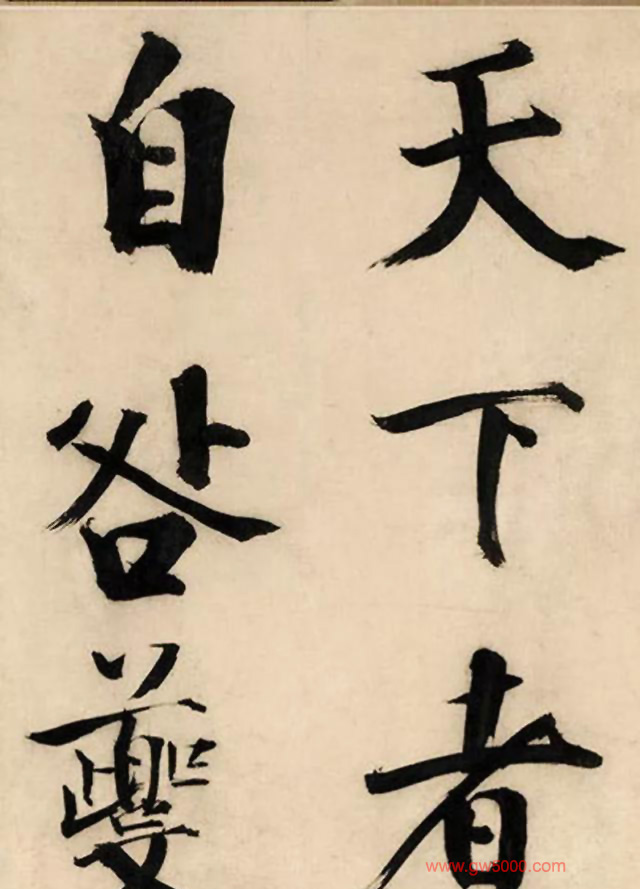 天下者
自咎夔
www.gw5000.com